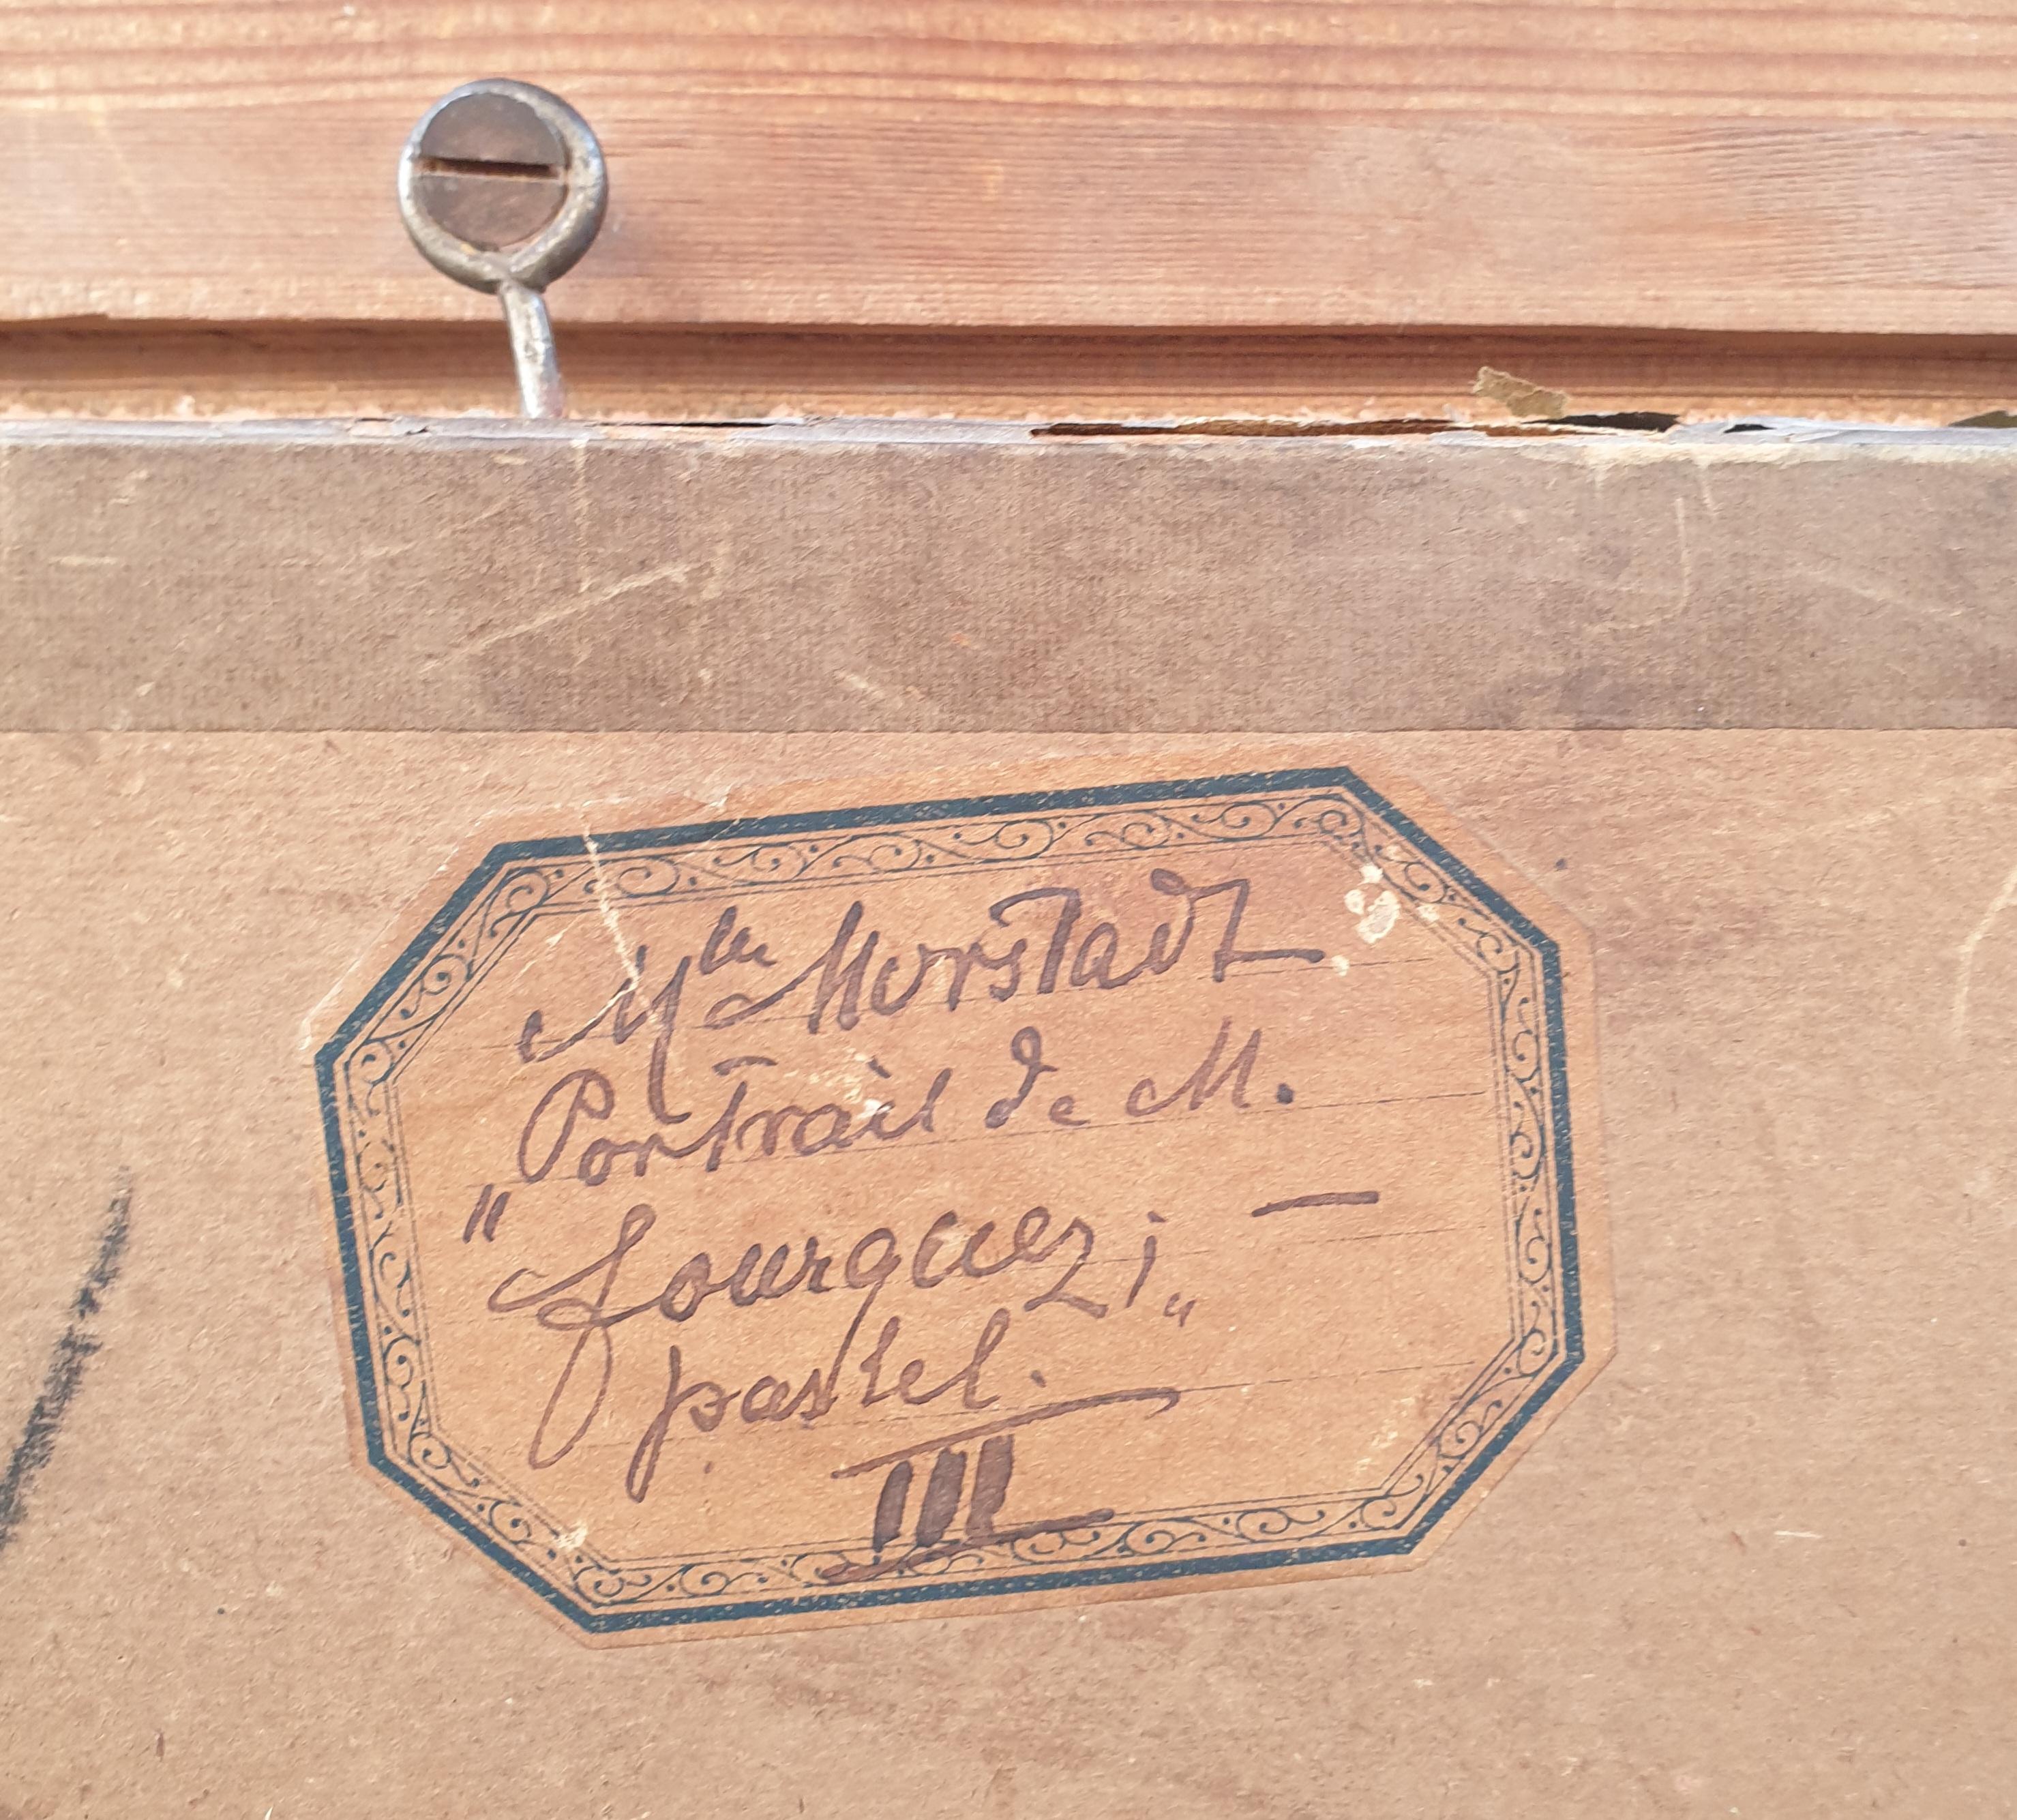 Mlle Morstadt
Portrait de M.
" Jourquez; —"
pastel.
III